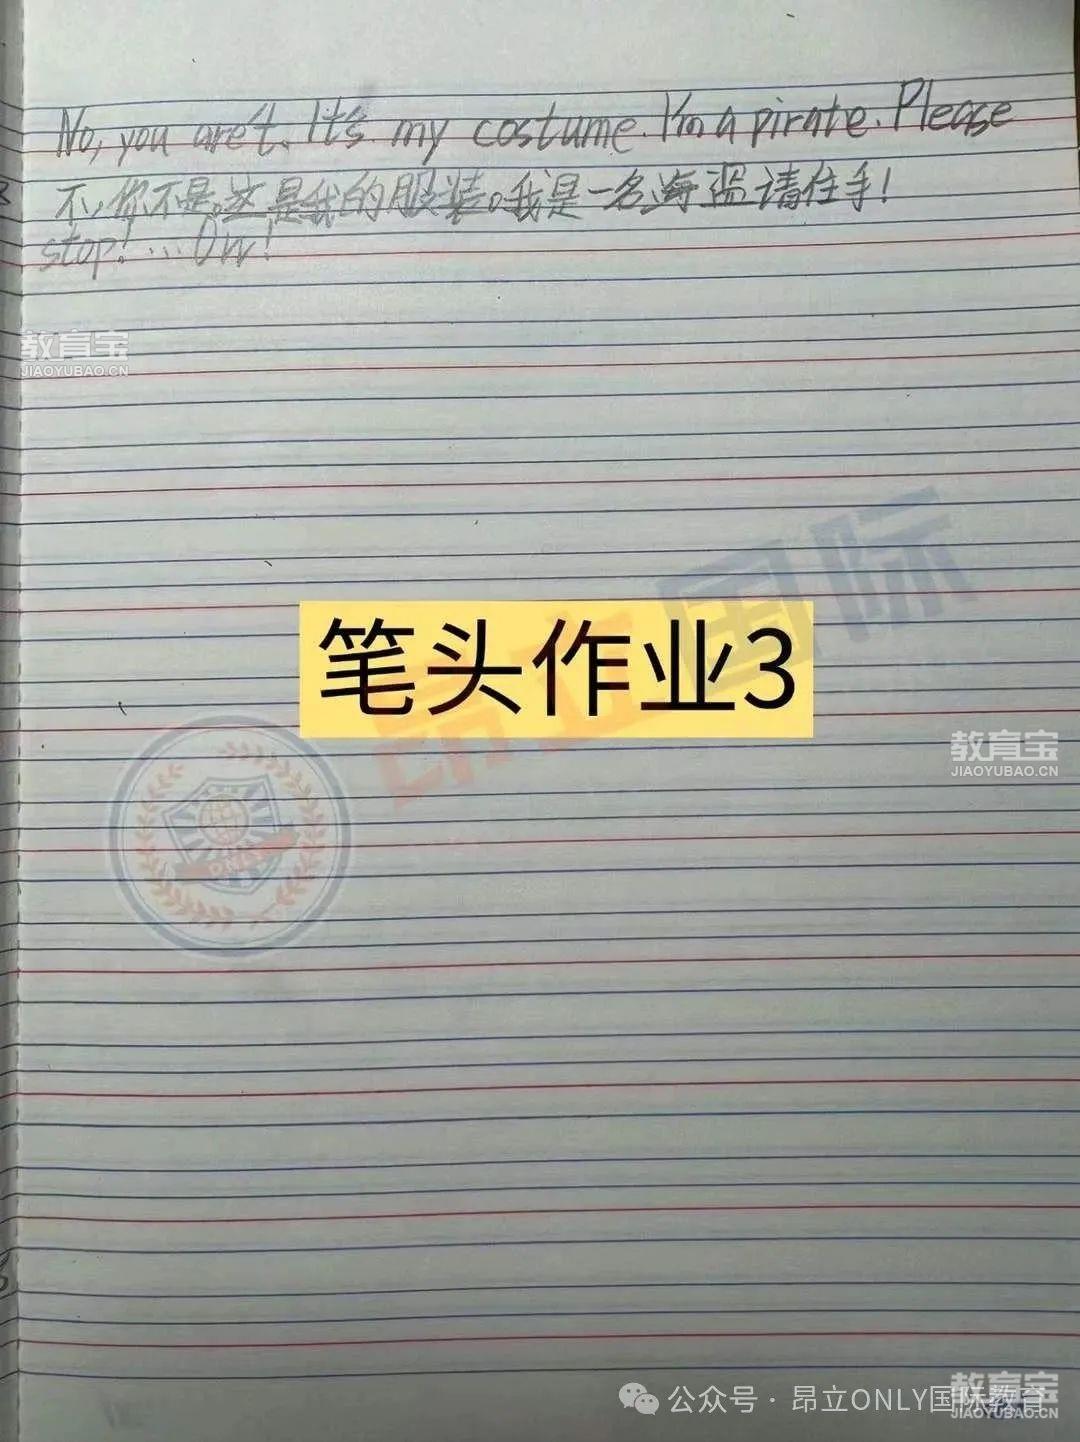 No, you are't. It's my costume. I'm a pirate. Please
不,你不是。这是我的服装。我是一名海盗请住手!
stop! ... Ow!
教育宝
JIAOYUBAO.CN
昂立国际
笔头作业3
教育宝
JIAOYUBAO.CN
ONLY
公众号 · 昂立ONLY国际教育
教育宝
JIAOYUBAO.CN